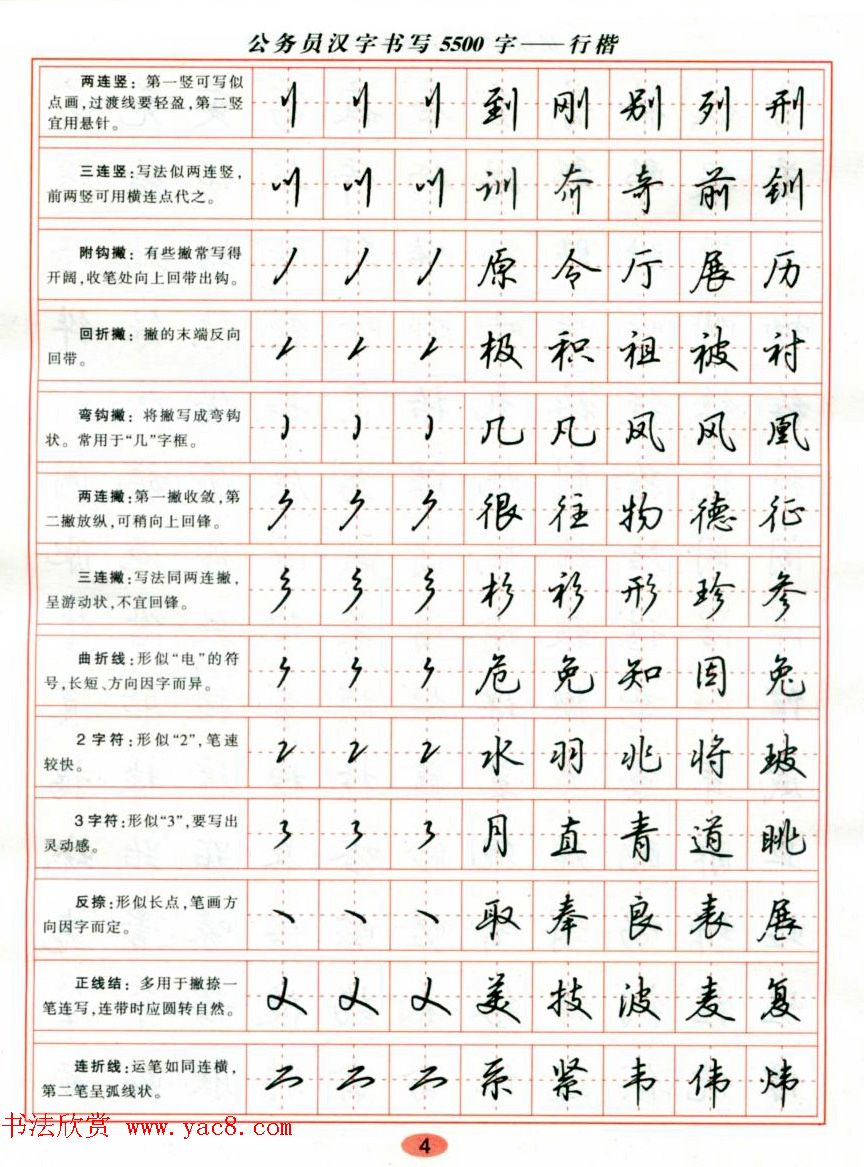 公务员汉字书写5500字——行楷
两连竖：第一竖可写似
点画，过渡线要轻盈，第二竖
宜用悬针。
到 刚 别 列 刑
三连竖：写法似两连竖，
前两竖可用横连点代之。
训 夼 奇 前 钏
附钩撇：有些撇常写得
开阔，收笔处向上回带出钩。
原 令 厅 展 历
回折撇：撇的末端反向
回带。
极 积 祖 被 衬
弯钩撇：将撇写成弯钩
状。常用于“几”字框。
几 凡 凤 风 凰
两连撇：第一撇收敛，第
二撇放纵，可稍向上回锋。
很 往 物 德 征
三连撇：写法同两连撇，
呈游动状，不宜回锋。
杉 衫 形 珍 参
曲折线：形似“电”的符
号，长短、方向因字而异。
危 免 知 因 兔
2字符：形似“2”，笔速
较快。
水 羽 兆 将 玻
3字符：形似“3”，要写出
灵动感。
月 直 青 道 眺
反捺：形似长点，笔画方
向因字而定。
取 奉 良 表 展
正线结：多用于撇捺一
笔连写，连带时应圆转自然。
美 技 波 麦 复
连折线：运笔如同连横，
第二笔呈弧线状。
系 紧 韦 伟 炜
书法欣赏 www.yac8.com
4